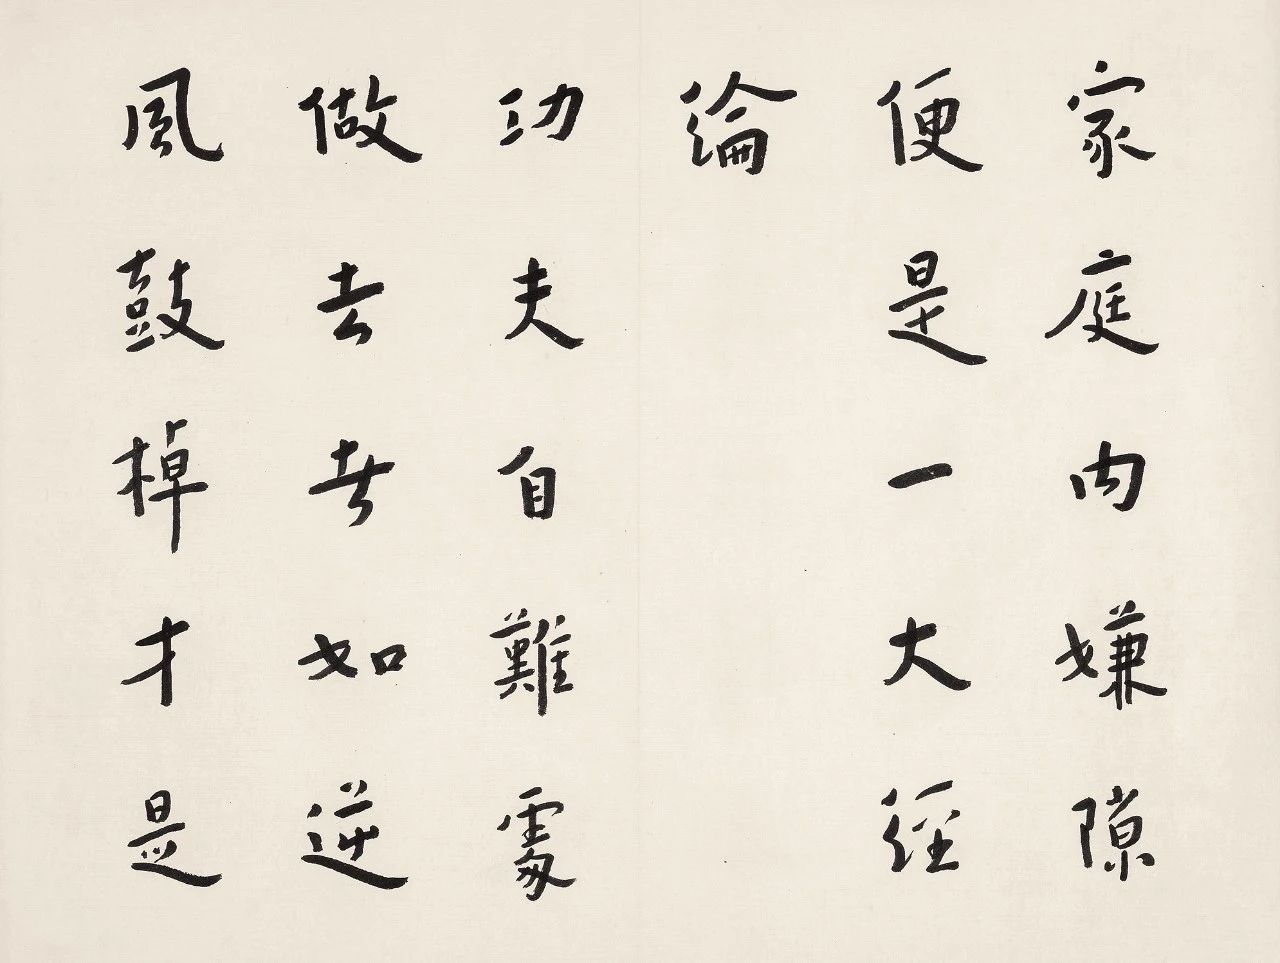 家庭内嫌隙
便是一大經
綸
功夫自難處
做去者如逆
風鼓棹才是